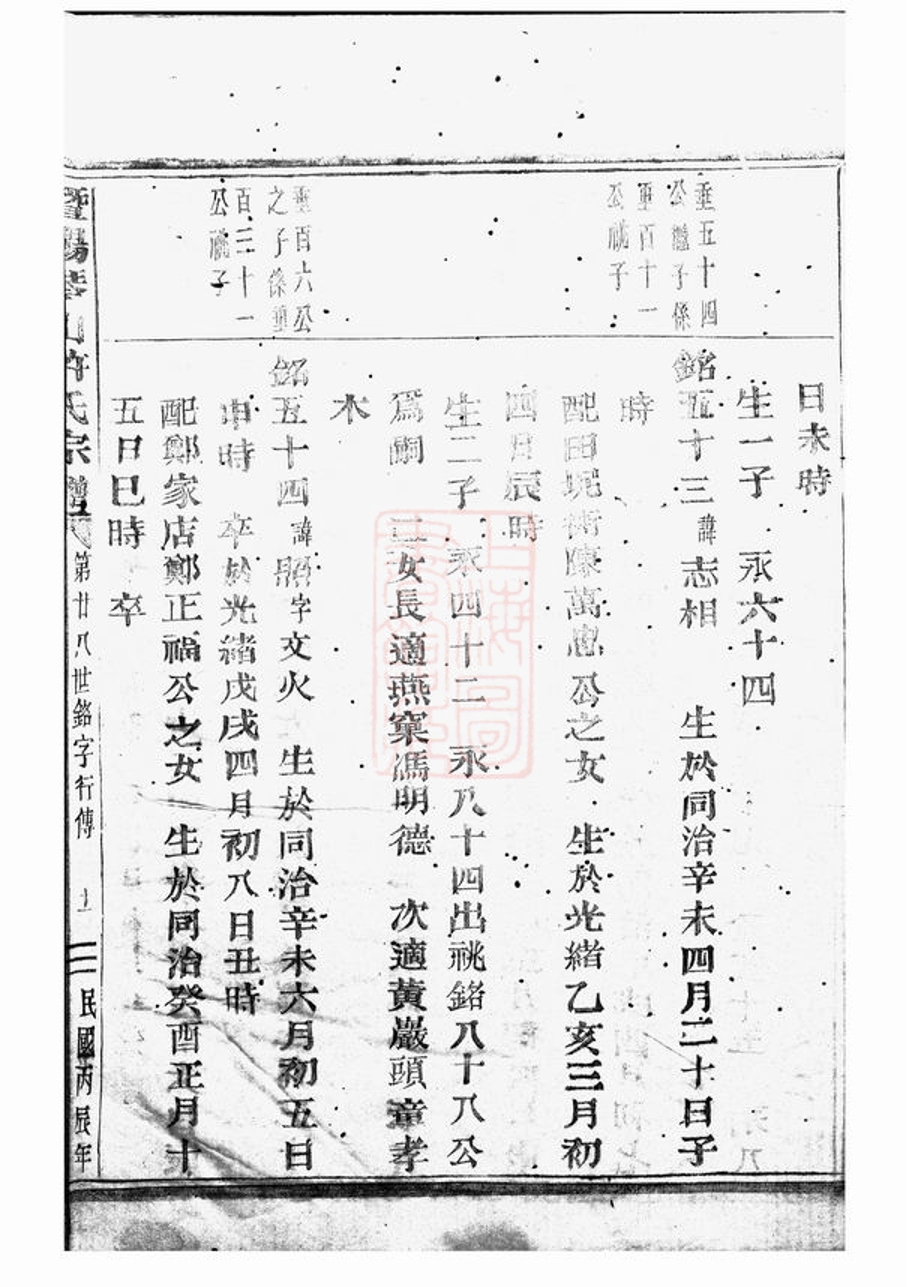 日未時
生一子　永六十四
垂五十四
公繼子係
垂百十一
公祧子
銘五十三諱志相　生於同治辛未四月二十日子
時
配田坭衕陳萬忠公之女　生於光緒乙亥三月初
四日辰時
生二子　永四十二　永八十四出祧銘八十八公
爲嗣　二女長適燕窠馮明德　次適黃巖頭童孝
木
垂百六公
之子係垂
百二十一
公祧子
銘五十四諱照字文火　生於同治辛未六月初五日
申時　卒於光緒戊戌四月初八日丑時
配鄭家店鄭正福公之女　生於同治癸酉正月十
五日巳時　卒
暨陽孝山許氏宗譜　第廿八世銘字行傳　民國丙辰年
上海圖書館藏